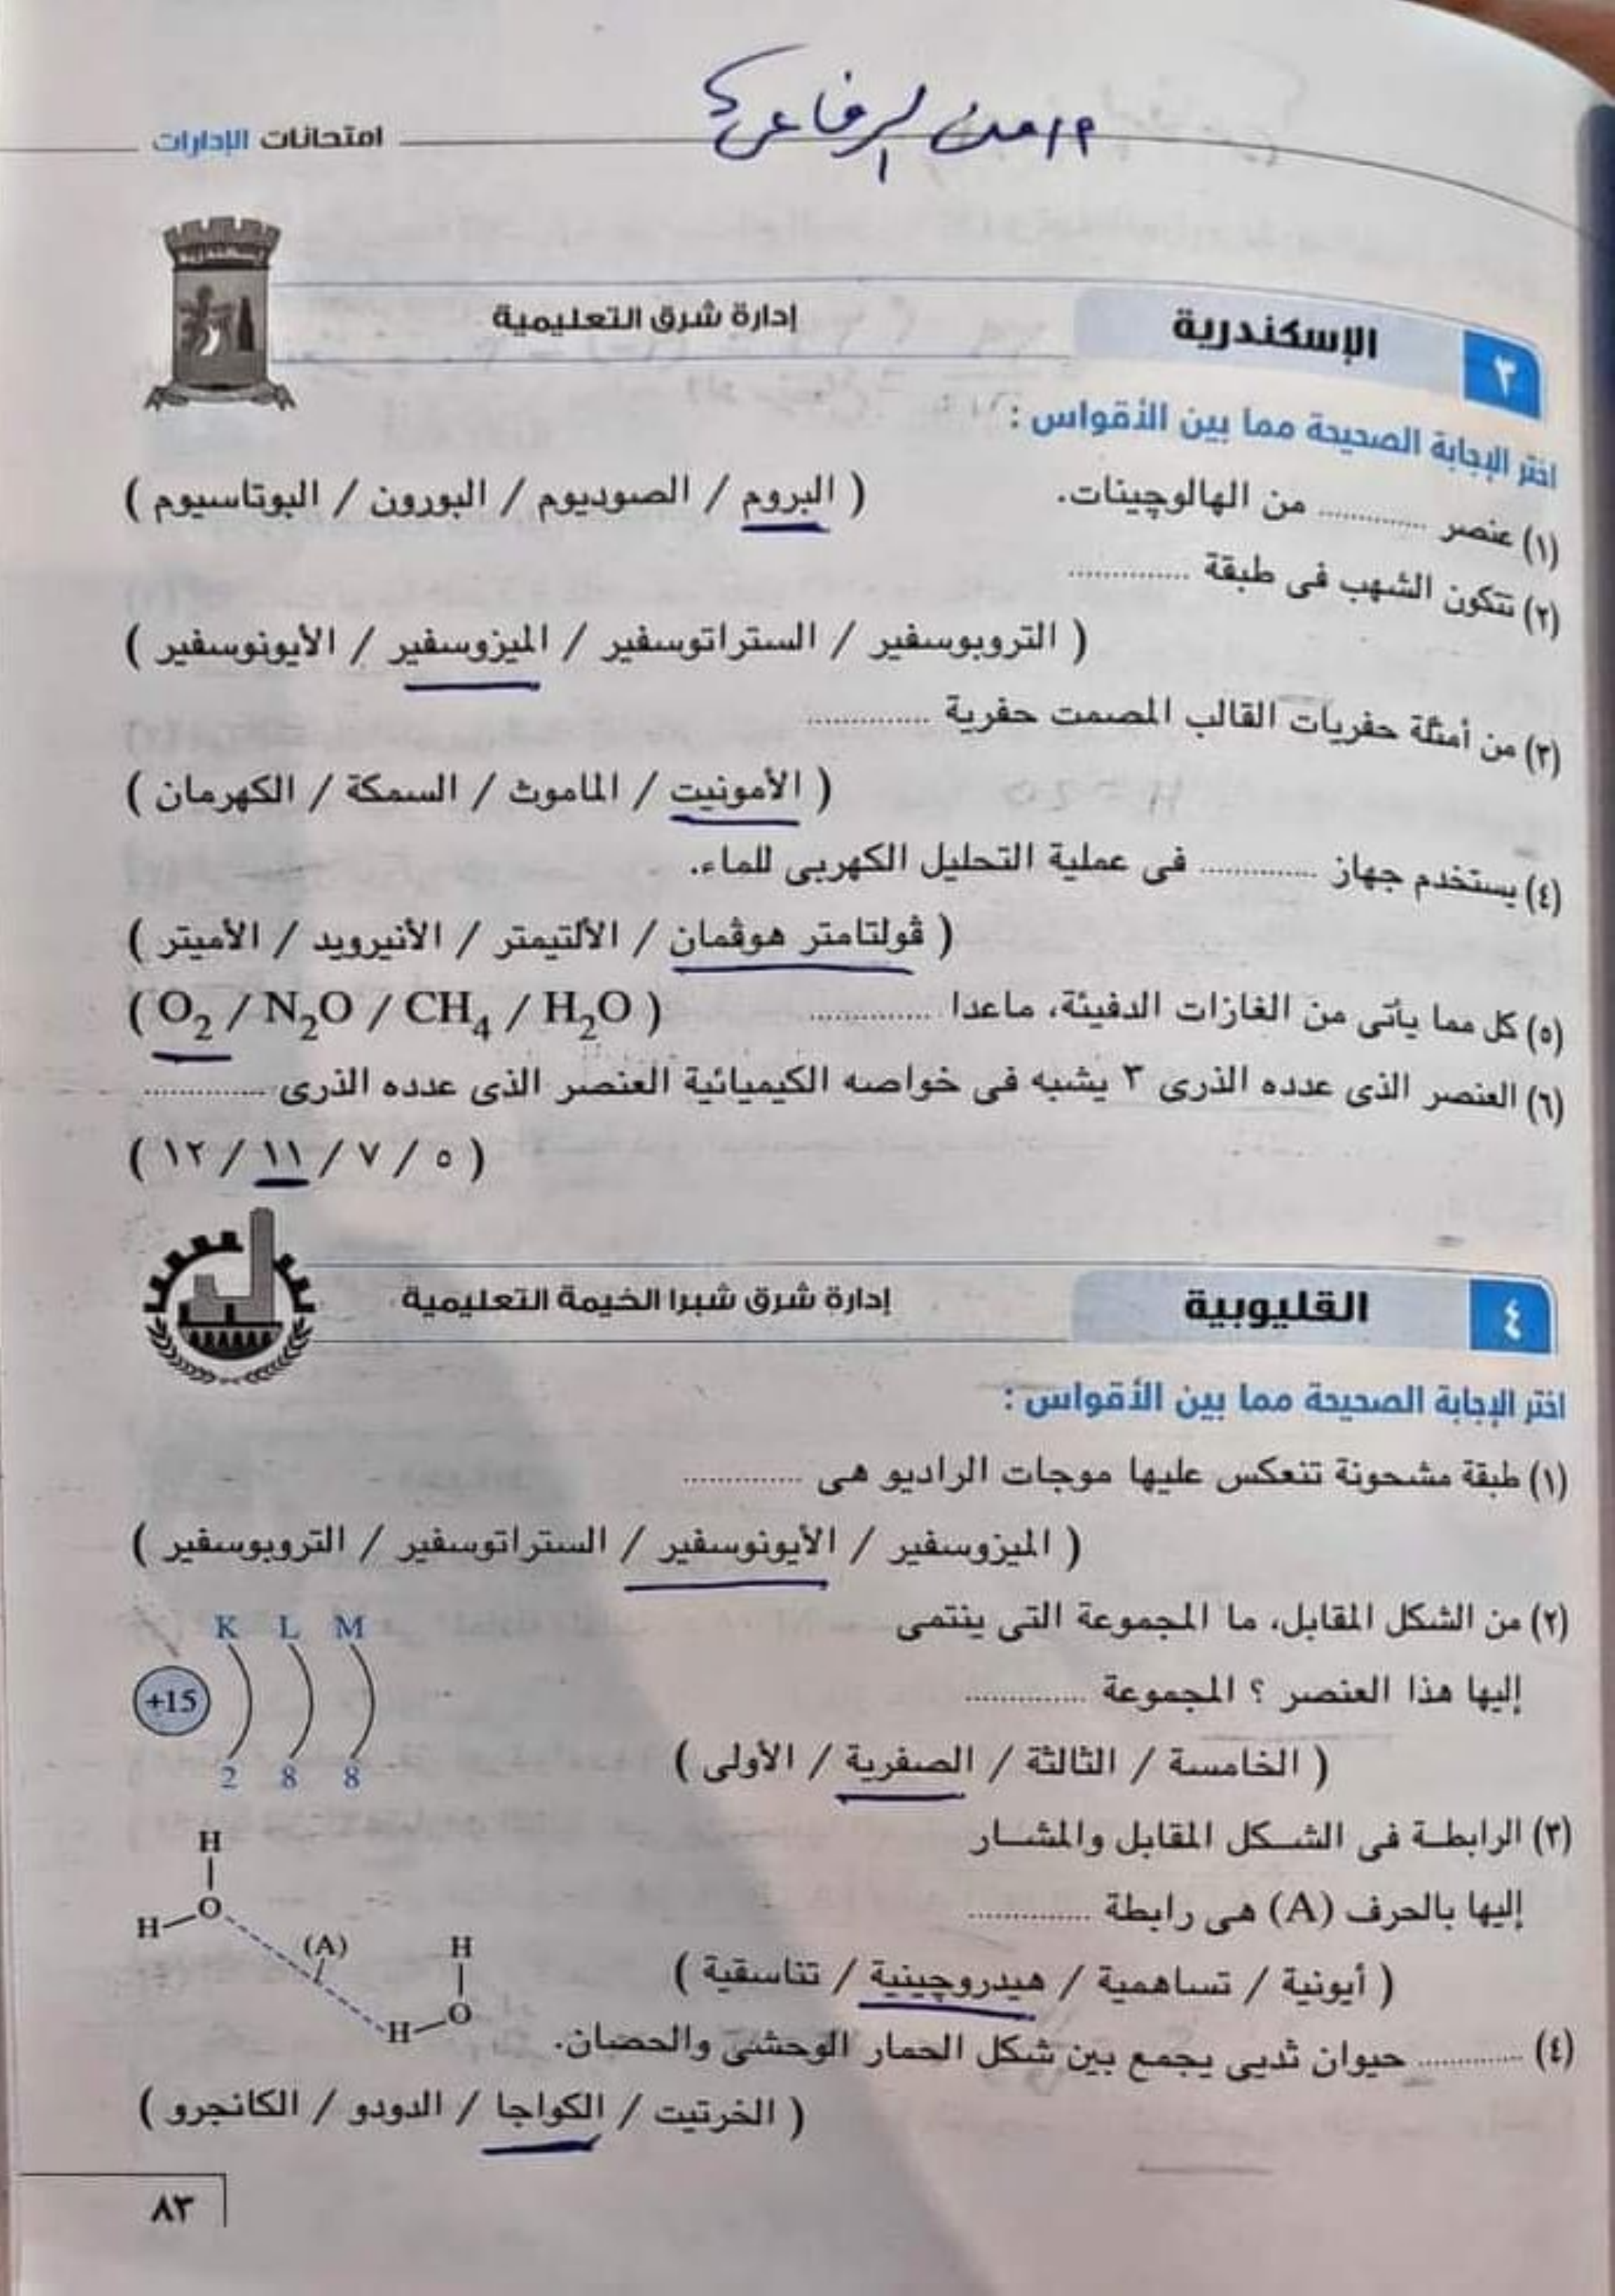 امتحانات الإدارات
إسكندرية
٣
الإسكندرية
إدارة شرق التعليمية
اختر الإجابة الصحيحة مما بين الأقواس :
(١) عنصر .............. من الهالوچينات.
( البروم / الصوديوم / البورون / البوتاسيوم )
(٢) تتكون الشهب فى طبقة ..............
( التروبوسفير / الستراتوسفير / الميزوسفير / الأيونوسفير )
(٣) من أمثلة حفريات القالب المصمت حفرية ..............
( الأمونيت / الماموث / السمكة / الكهرمان )
(٤) يستخدم جهاز .............. فى عملية التحليل الكهربى للماء.
( ڤولتامتر هوڤمان / الألتيمتر / الأنيرويد / الأميتر )
(٥) كل مما يأتى من الغازات الدفيئة، ماعدا .............. ( O₂ / N₂O / CH₄ / H₂O )
(٦) العنصر الذى عدده الذرى ٣ يشبه فى خواصه الكيميائية العنصر الذى عدده الذرى ..............
( ٥ / ٧ / ١١ / ١٢ )
٤
القليوبية
إدارة شرق شبرا الخيمة التعليمية
اختر الإجابة الصحيحة مما بين الأقواس :
(١) طبقة مشحونة تنعكس عليها موجات الراديو هى ..............
( الميزوسفير / الأيونوسفير / الستراتوسفير / التروبوسفير )
(٢) من الشكل المقابل، ما المجموعة التى ينتمى
إليها هذا العنصر ؟ المجموعة ..............
( الخامسة / الثالثة / الصفرية / الأولى )
K L M
+15
2 8 8
(٣) الرابطة فى الشكل المقابل والمشار
إليها بالحرف (A) هى رابطة ..............
( أيونية / تساهمية / هيدروچينية / تناسقية )
H
H O
(A)
H
H O
(٤) .............. حيوان ثديى يجمع بين شكل الحمار الوحشى والحصان.
( الخرتيت / الكواجا / الدودو / الكانجرو )
٨٣